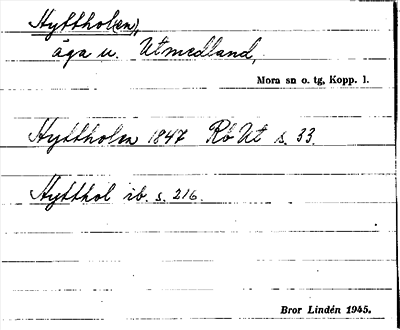 Hytthol(en),
äga u. Utmedland,
Mora sn o. tg, Kopp. l.
Hyttholen 1847 Rö Ut s. 33.
Hytthol ib. s. 216.
Bror Lindén 1945.